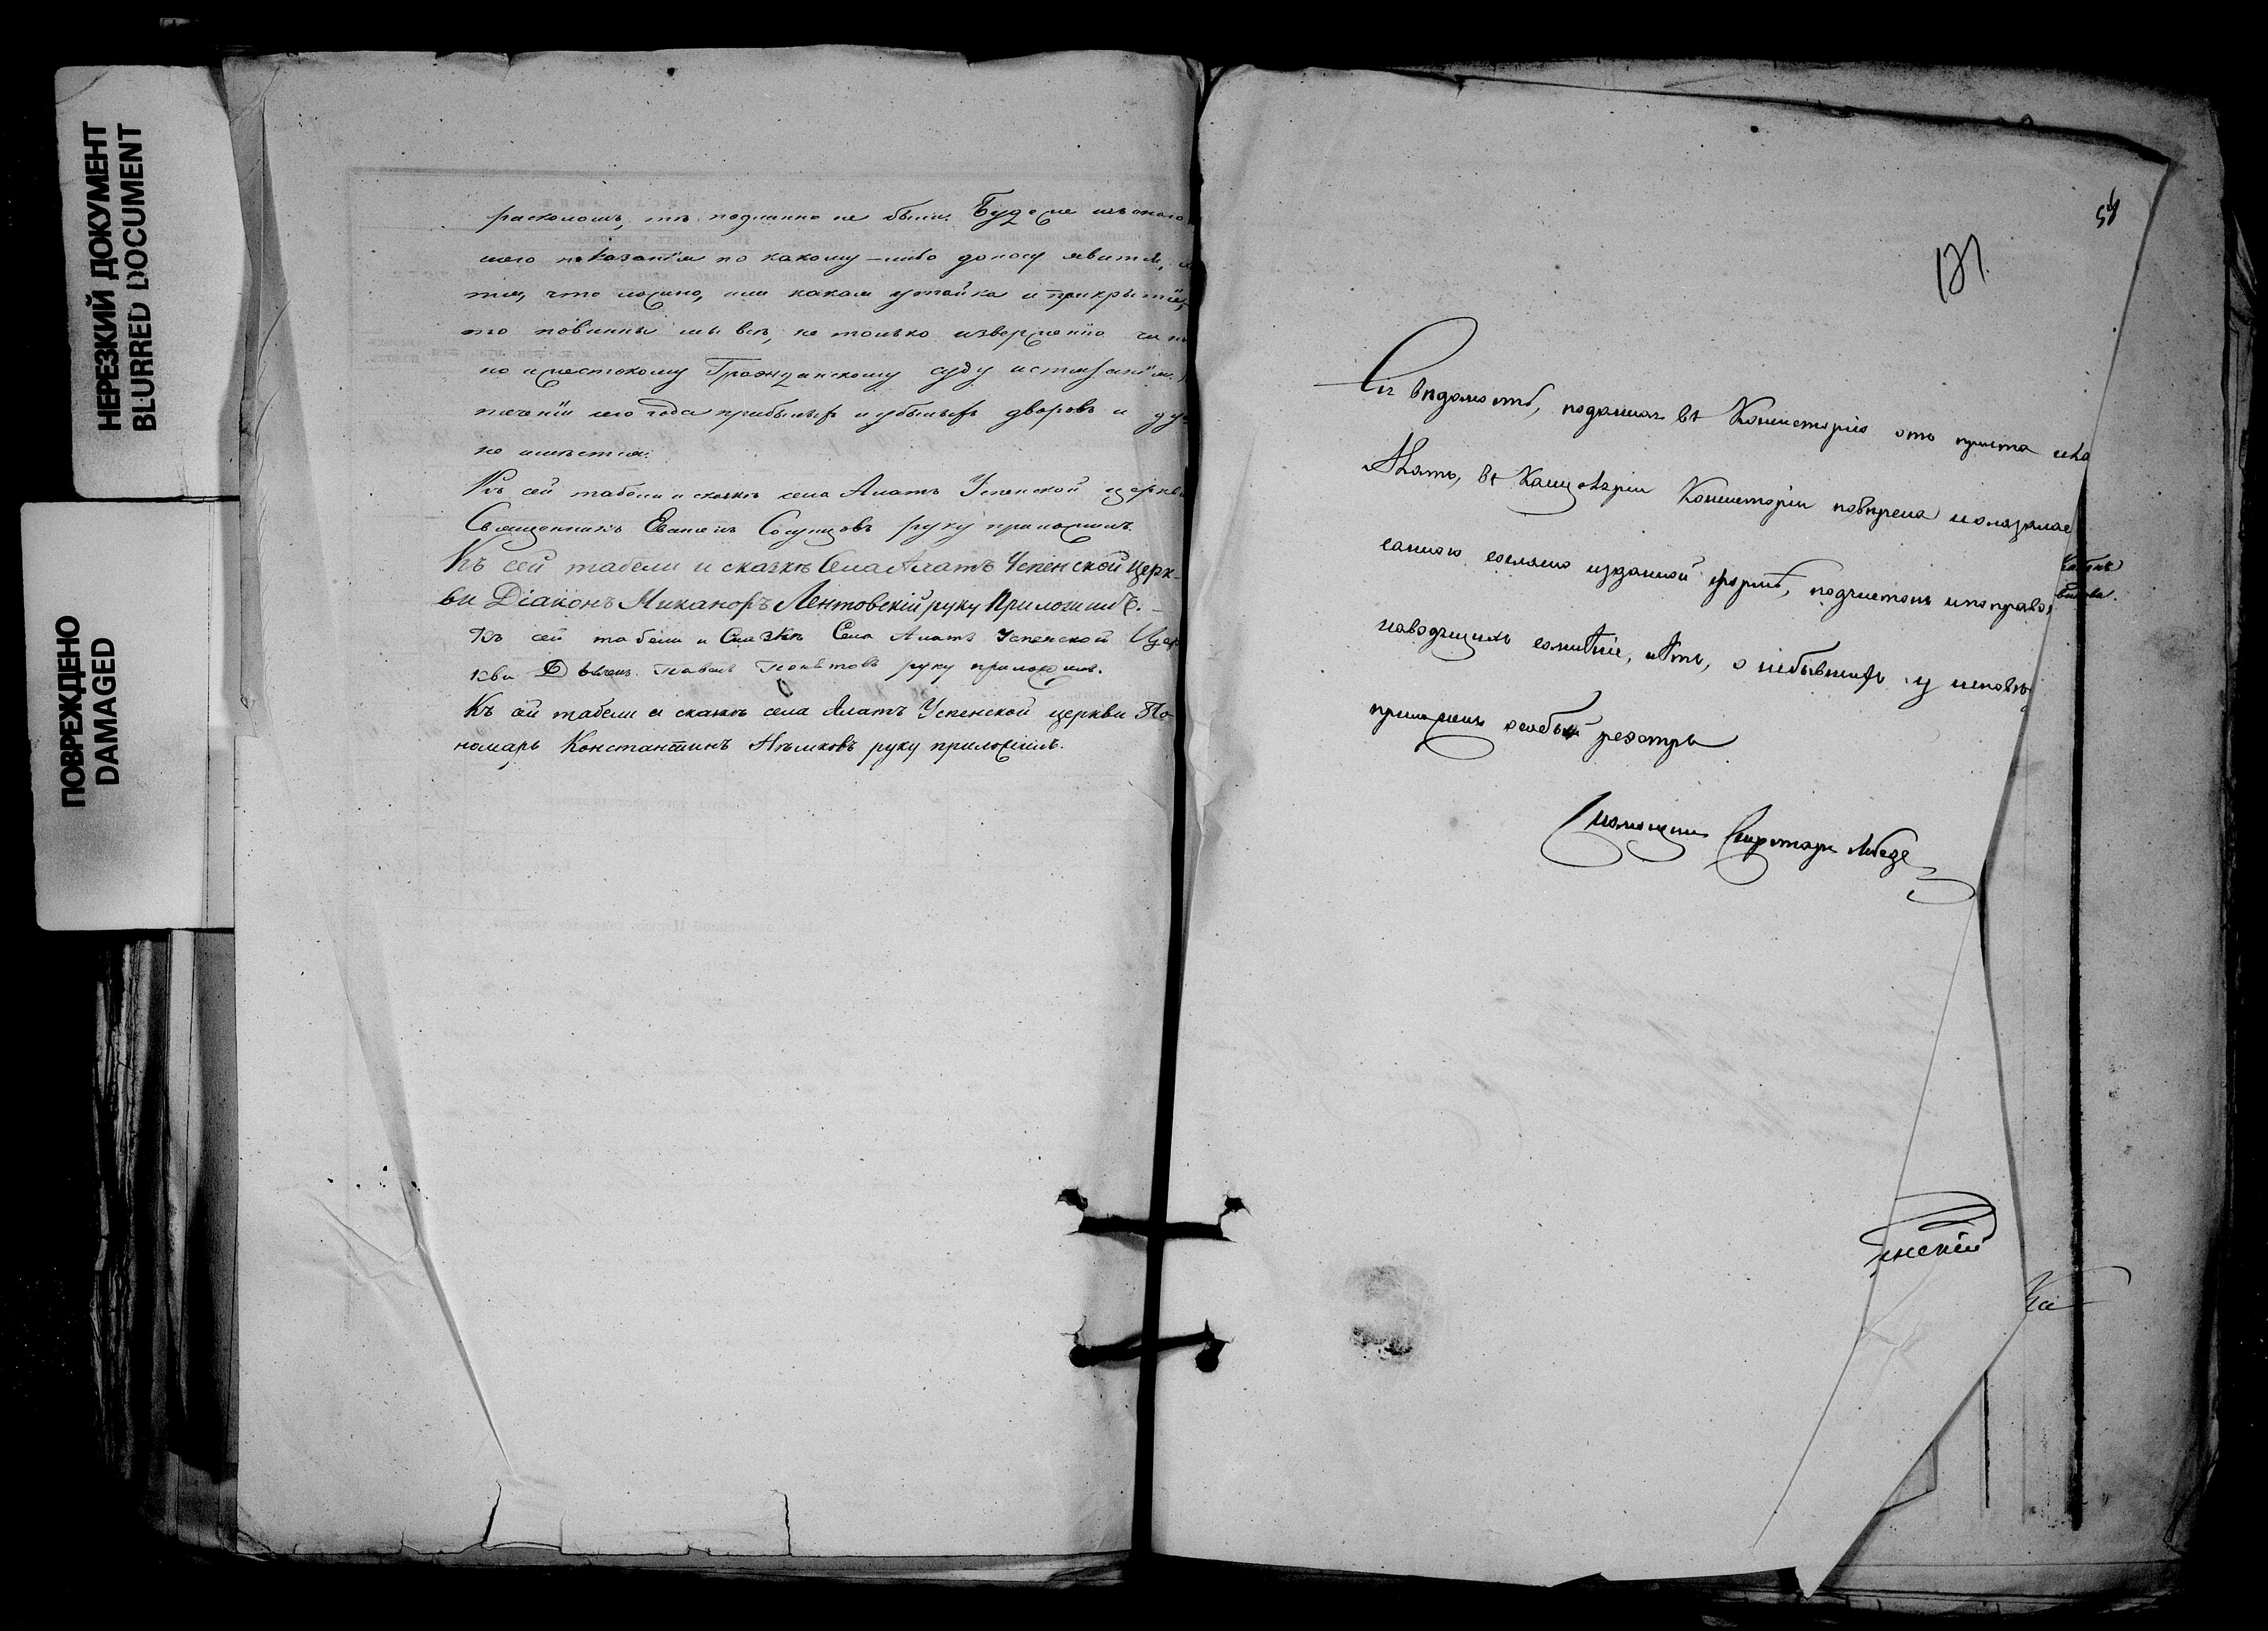 НЕРЕЗКИЙ ДОКУМЕНТ
BLURRED DOCUMENT
ПОВРЕЖДЕНО
DAMAGED
расколомъ, тѣ подлинно не были. Будеже изъ онаго
моего показанія по какому-либо доносу явится,
что ложно, или какая утайка и прикрытіе,
то повинны мы всѣ, не только изверженію
но и жестокому Гражданскому суду истязанію.
теченіи сего года прибылыхъ и убылыхъ дворовъ и ду-
не имѣется.
Къ сей табели и сказкѣ села Алатъ Успенской церкви
Священникъ руку приложилъ.
Къ сей табели и сказкѣ Села Алатъ Успенской Церк-
ви Діаконъ Никаноръ Лентовскій руку Приложилъ.
Къ сей табели и Сказкѣ Села Алатъ Успенской Цер
кви Дьячекъ Павелъ руку приложилъ.
Къ сей табели и сказкѣ села Алатъ Успенской церкви По-
номарь Константинъ руку приложилъ.
131.
Сія вѣдомость, поданная въ Консисторію отъ причта села
Алатъ, въ Канцеляріи Консисторіи повѣрена и оказалась
согласно изданной формѣ, подчистокъ и поправокъ
наводящихъ сомнѣніе, нѣтъ, о небывшихъ у исповѣди
приложенъ особый реэстръ
Секретаря